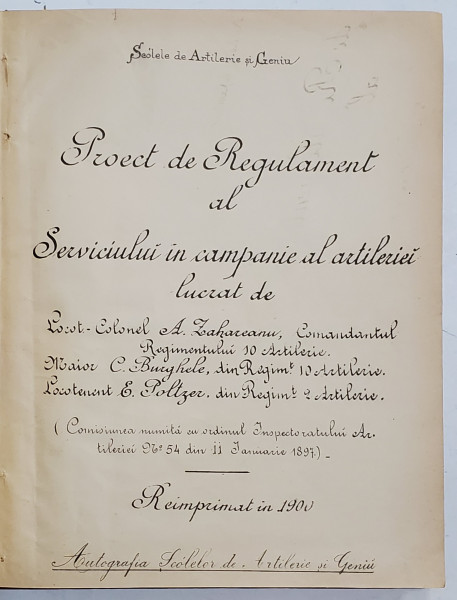 Scólele de Artilerie și Geniu
Proect de Regulament
al
Serviciului in campanie al artileriei
lucrat de
Locot-Colonel A. Zahareanu, Comandantul
Regimentului 10 Artilerie.
Maior C. Burghele, din Regimt. 10 Artilerie.
Locotenent E. Poltzer, din Regimt. 2 Artilerie.
(Comisiunea numită cu ordinul Inspectoratului Ar-
tileriei No 54 din 11 Ianuarie 1897.)_
Reimprimat in 1900
Autografia Scólelor de Artilerie și Geniu